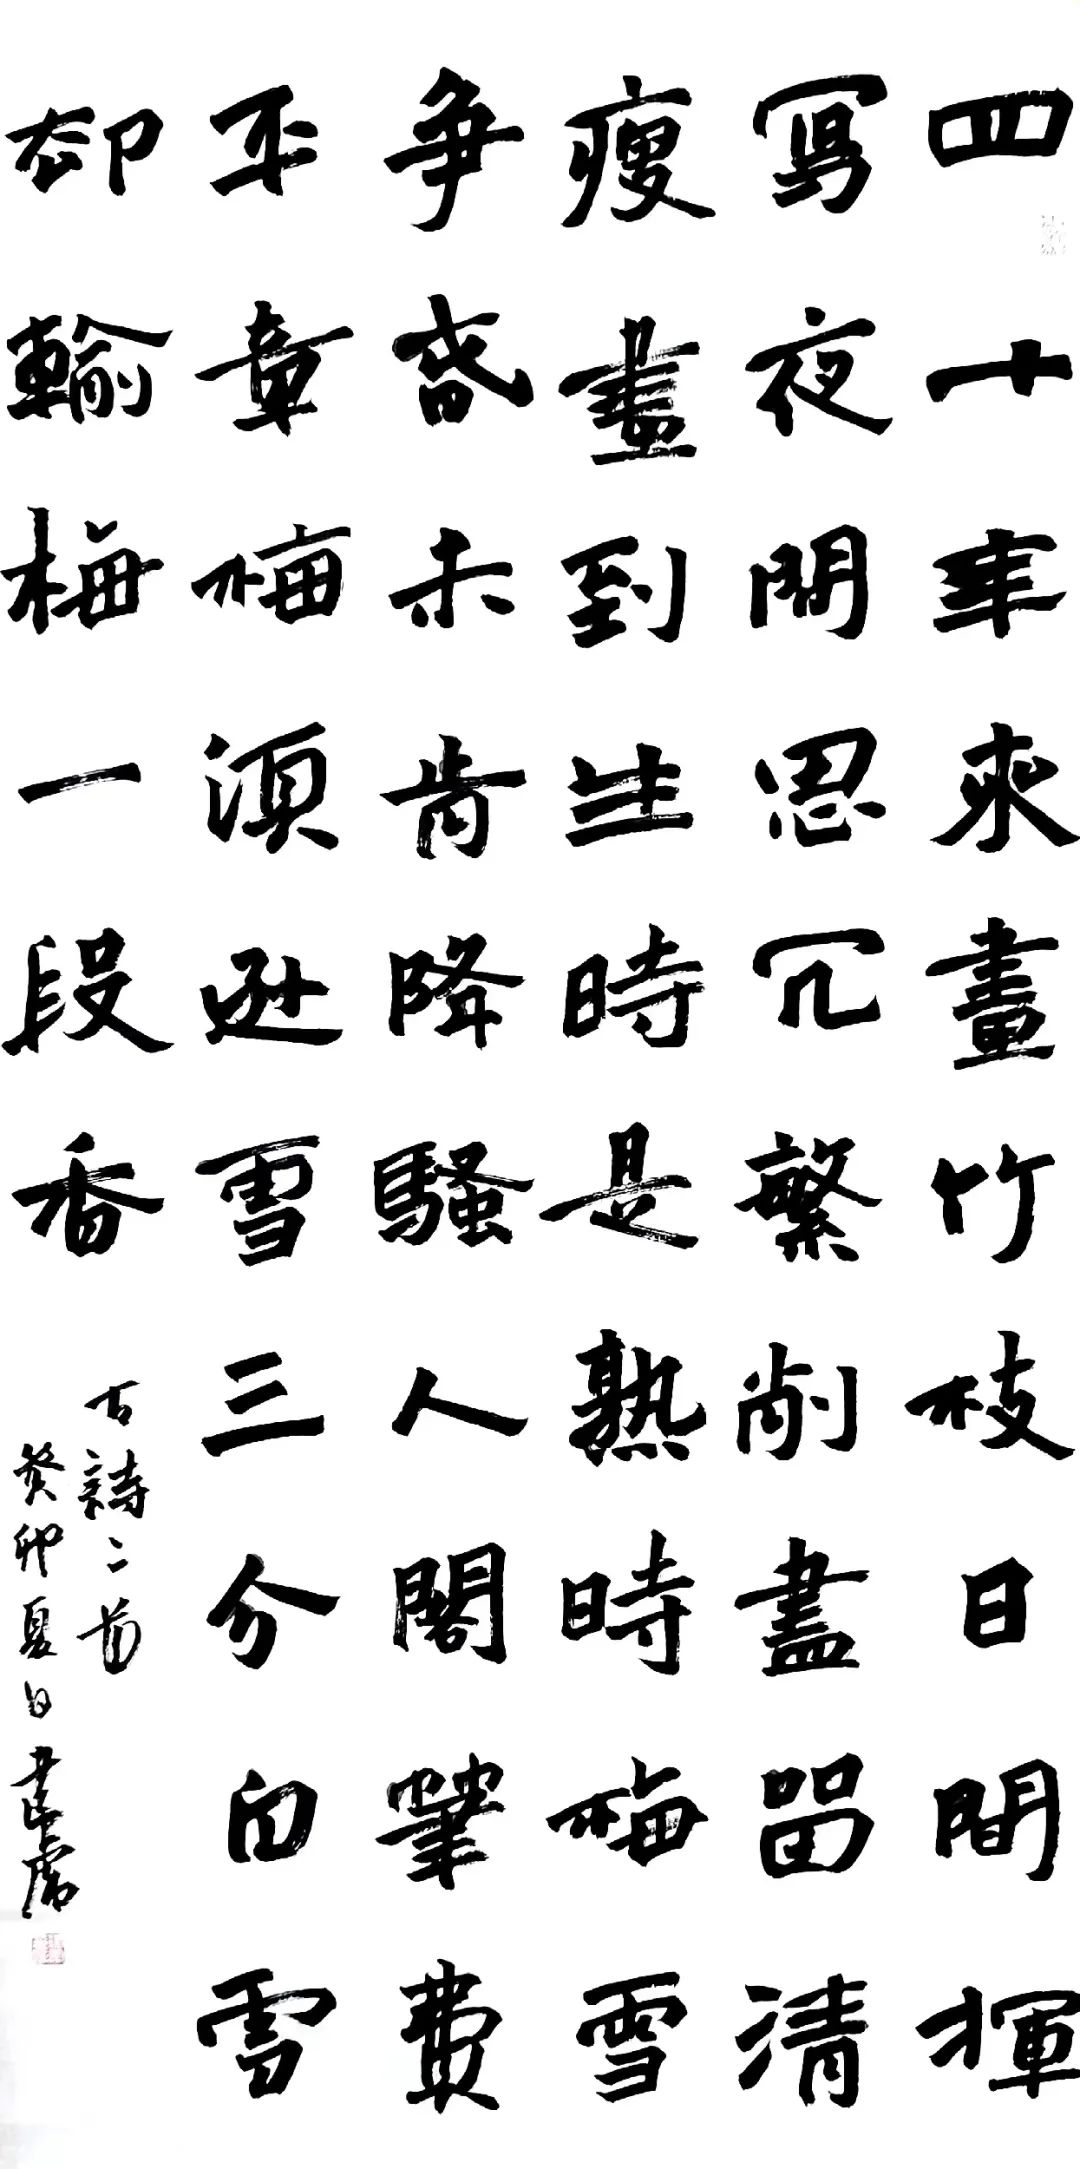 四十年來畫竹枝日間揮
寫夜間思冗繁削盡留清
瘦畫到生時是熟時梅雪
爭春未肯降騷人閣筆費
平章梅須遜雪三分白雪
却輸梅一段香
古詩二首
癸卯夏日